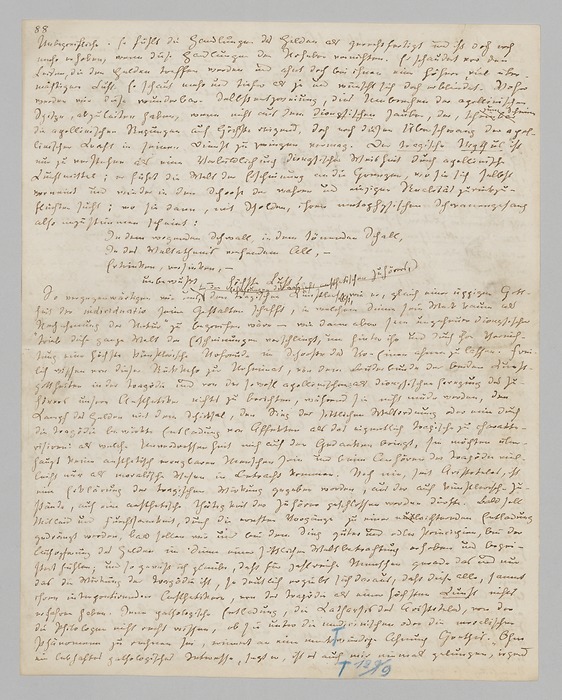 88
Unbegreifliche. Er fühlt die Handlungen des Helden als gerechtfertigt und ist doch noch
mehr erhoben, wenn diese Handlungen den Urheber vernichten. Er schaudert vor den
Leiden, die den Helden treffen werden und ahnt doch bei ihnen eine höhere viel über-
mächtigere Lust. Er schaut mehr und tiefer als je und wünscht sich doch erblindet. Woher
werden wir diese wunderbare Selbstentzweiung, dies Umbrechen der apollinischen
Spitze, abzuleiten haben, wenn nicht aus dem dionysischen Zauber, der,
die apollinischen Regungen aufs Höchste reizend, doch noch diesen Überschwang der apol-
linischen Kraft in seinen Dienst zu zwingen vermag. Der tragische Mythus ist
nur zu verstehen als eine Verbildlichung dionysischer Weisheit durch apollinische
Kunstmittel; er führt die Welt der Erscheinung an die Grenzen, wo sie sich selbst
verneint und wieder in den Schooß der wahren und einzigen Realität zurückzu-
flüchten sucht; wo sie dann, mit Isolden, ihren metaphysischen Schwanengesang
also anzustimmen scheint:
In dem wogenden Schwall, in dem tönenden Schall,
In des Weltathems wehendem All, –
Ertrinken, versinken, –
unbewußt, – höchste Lust!
So vergegenwärtigen wir uns den tragischen Künstler selbst, wie er, gleich einer üppigen Gott-
heit der individuatio seine Gestalten schafft, in welchem Sinne sein Werk kaum als
Nachahmung der Natur zu begreifen wäre – wie dann aber sein ungeheurer dionysischer
Trieb diese ganze Welt der Erscheinungen verschlingt, um hinter ihr und durch ihre Vernich-
tung eine höchste künstlerische Urfreude im Schooße des Ur-Einen ahnen zu lassen. Frei-
lich wissen von dieser Rückkehr zur Urheimat, von dem Bruderbunde der beiden Kunst-
gottheiten in der Tragödie und von der sowohl apollinischen als dionysischen Erregung des Zu-
hörers unsere Aesthetiker nichts zu berichten, während sie nicht müde werden, den
Kampf des Helden mit dem Schicksal, den Sieg der sittlichen Weltordnung oder eine durch
die Tragödie bewirkte Entladung von Affekten als das eigentlich Tragische zu charakte-
risiren: welche Unverdrossenheit mich auf den Gedanken bringt, sie möchten über-
haupt keine aesthetisch erregbaren Menschen sein und beim Anhören der Tragödie viel-
leicht nur als moralische Wesen in Betracht kommen. Noch nie, seit Aristoteles, ist
eine Erklärung der tragischen Wirkung gegeben worden, aus der auf künstlerische Zu-
stände, auf eine aesthetische Thätigkeit der Zuhörer geschlossen werden dürfte. Bald soll
Mitleid und Furchtsamkeit durch die ernsten Vorgänge zu einer erleichternden Entladung
gedrängt werden, bald sollen wir uns bei dem Sieg guter und edler Principien, bei der
Aufopferung des Helden im Sinne einer sittlichen Weltbetrachtung erhoben und begei-
stert fühlen; und so gewiß ich glaube, daß für zahlreiche Menschen gerade das und nur
das die Wirkung der Tragödie ist, so deutlich ergiebt sich daraus, daß diese alle, sammt
ihren interpretirenden Aesthetikern, von der Tragödie als einer höchsten Kunst nichts
erfahren haben. Jene pathologische Entladung, die Katharsis des Aristoteles, von der
die Philologen nicht recht wissen, ob sie unter die medicinischen oder die moralischen
Phänomene zu rechnen sei, erinnert an eine merkwürdige Ahnung Goethes. Ohne
ein lebhaftes pathologisches Interesse, sagt er, ist es auch mir niemals gelungen, irgend